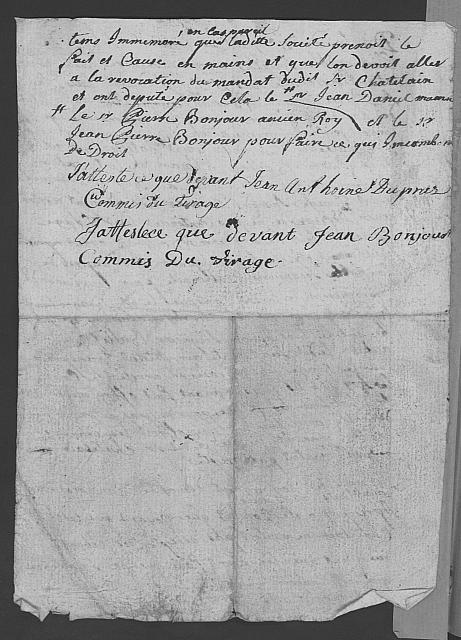 en cas pareil
tems Immemore que ladtte Societé prenoit le
fait et Cause en mains et que lon devoit aller
a la revocation du mandat dudit Sr Chatelain
et ont deputé pour Cela le Sr Jean Daniel
Le Sr Pierre Bonjour ancien Roy et le Sr
Jean Pierre Bonjour pour faire ce qui Incombe
de Droit
J'atteste ce que devant Jean Anthoine Duprez
Commis du Tirage
Jattestece que devant Jean Bonjour
Commis Du tirage